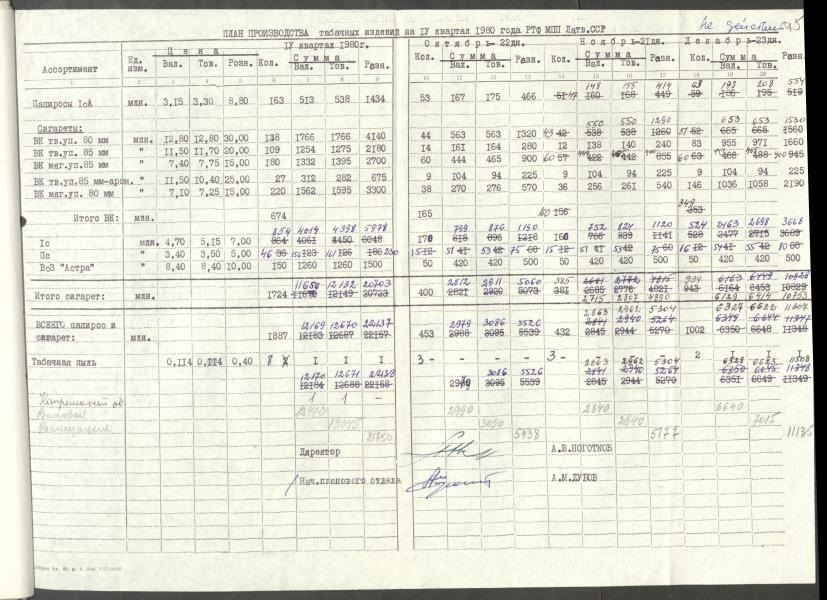 Не действит.
ПЛАН ПРОИЗВОДСТВА табачных изделий на IУ квартал 1980 года РТФ МПП Латв.ССР
Ассортимент Ед. изм. Цена IУ квартал 1980г. Октябрь-22дн. Ноябрь-21дн. Декабрь-23дн. Розн
Вал. Тов. Розн. Кол. Сумма Розн. Кол. Сумма Розн Кол. Сумма Розн Кол. Сумма
Вал. Тов. Вал. Тов. Вал. Тов. Вал. Тов.
1 2 3 4 5 6 7 8 9 10 11 12 13 14 15 16 17 18 19 20
148 155 414 68 198 208 554
Папиросы IсА млн. 3,15 3,30 8,80 163 513 538 1434 53 167 175 466 51 47 160 168 449 59 186 195 519
Сигареты: 550 550 1290 653 653 1530
ВК тв.уп. 80 мм млн. 12,80 12,80 30,00 138 1766 1766 4140 44 563 563 1320 43 42 538 538 1260 51 52 665 665 1560
ВК тв.уп. 85 мм " 11,50 11,70 20,00 109 1254 1275 2180 14 161 164 280 12 138 140 240 83 955 971 1660
ВК мяг.уп. 85 мм " 7,40 7,75 15,00 180 1332 1395 2700 60 444 465 900 60 57 422 442 855 60 63 466 488 900 945
ВК тв.уп.85 мм-аром. " 11,50 10,40 25,00 27 312 282 675 9 104 94 225 9 104 94 225 9 104 94 225
ВК мяг.уп. 80 мм " 7,10 7,25 15,00 220 1562 1595 3300 38 270 276 570 36 256 261 540 146 1036 1058 2190
349
Итого ВК: млн. 674 165 160 156 353
854 4014 4398 5978 799 876 1150 752 824 1120 524 2463 2698 3668
Iс млн. 4,70 5,15 7,00 864 4061 4450 6048 170 818 896 1218 160 768 839 1141 528 2477 2715 3689
Пс " 3,40 3,50 5,00 46 36 156 123 161 126 180 230 15 12 51 41 53 42 75 60 15 12 51 41 53 42 75 60 16 12 51 41 55 42 80 60
ВсЗ "Астра" " 8,40 8,40 10,00 150 1260 1260 1500 50 420 420 500 50 420 420 500 50 420 420 500
11650 12132 20703 2812 2911 5060 385 2681 2772 4815 934 6163 6449 10828
Итого сигарет: млн. 1724 11670 12149 20723 400 2821 2920 5073 381 2685 2776 4821 943 6164 6453 10829
2715 2807 4890 6129 6414 10753
2863 2962 5304 6327 6622 11307
ВСЕГО папирос и 12169 12670 22137 2979 3086 5526 2841 2940 5264 6349 6644 11347
сигарет: млн. 1887 12183 12687 22157 453 2988 3095 5539 432 2845 2944 5270 1002 6350 6648 11348
Табачная пыль 0,114 0,114 0,40 8 I I I 3 - - - 3 - 2863 2962 5304 2 I I I
6328 6623 11308
12170 12671 22138 3086 5526 2841 2940 5264 6350 6645 11348
12184 12688 22158 2979 3095 5539 2845 2944 5270 6351 6649 11349
1 1 -
Валовая 12470 2990 2840 6640
13045 3090 2840 7015
21750 5438 5177 11135
Директор А.В.НОГОТКОВ
Нач.планового отдела А.М.ДУБОВ